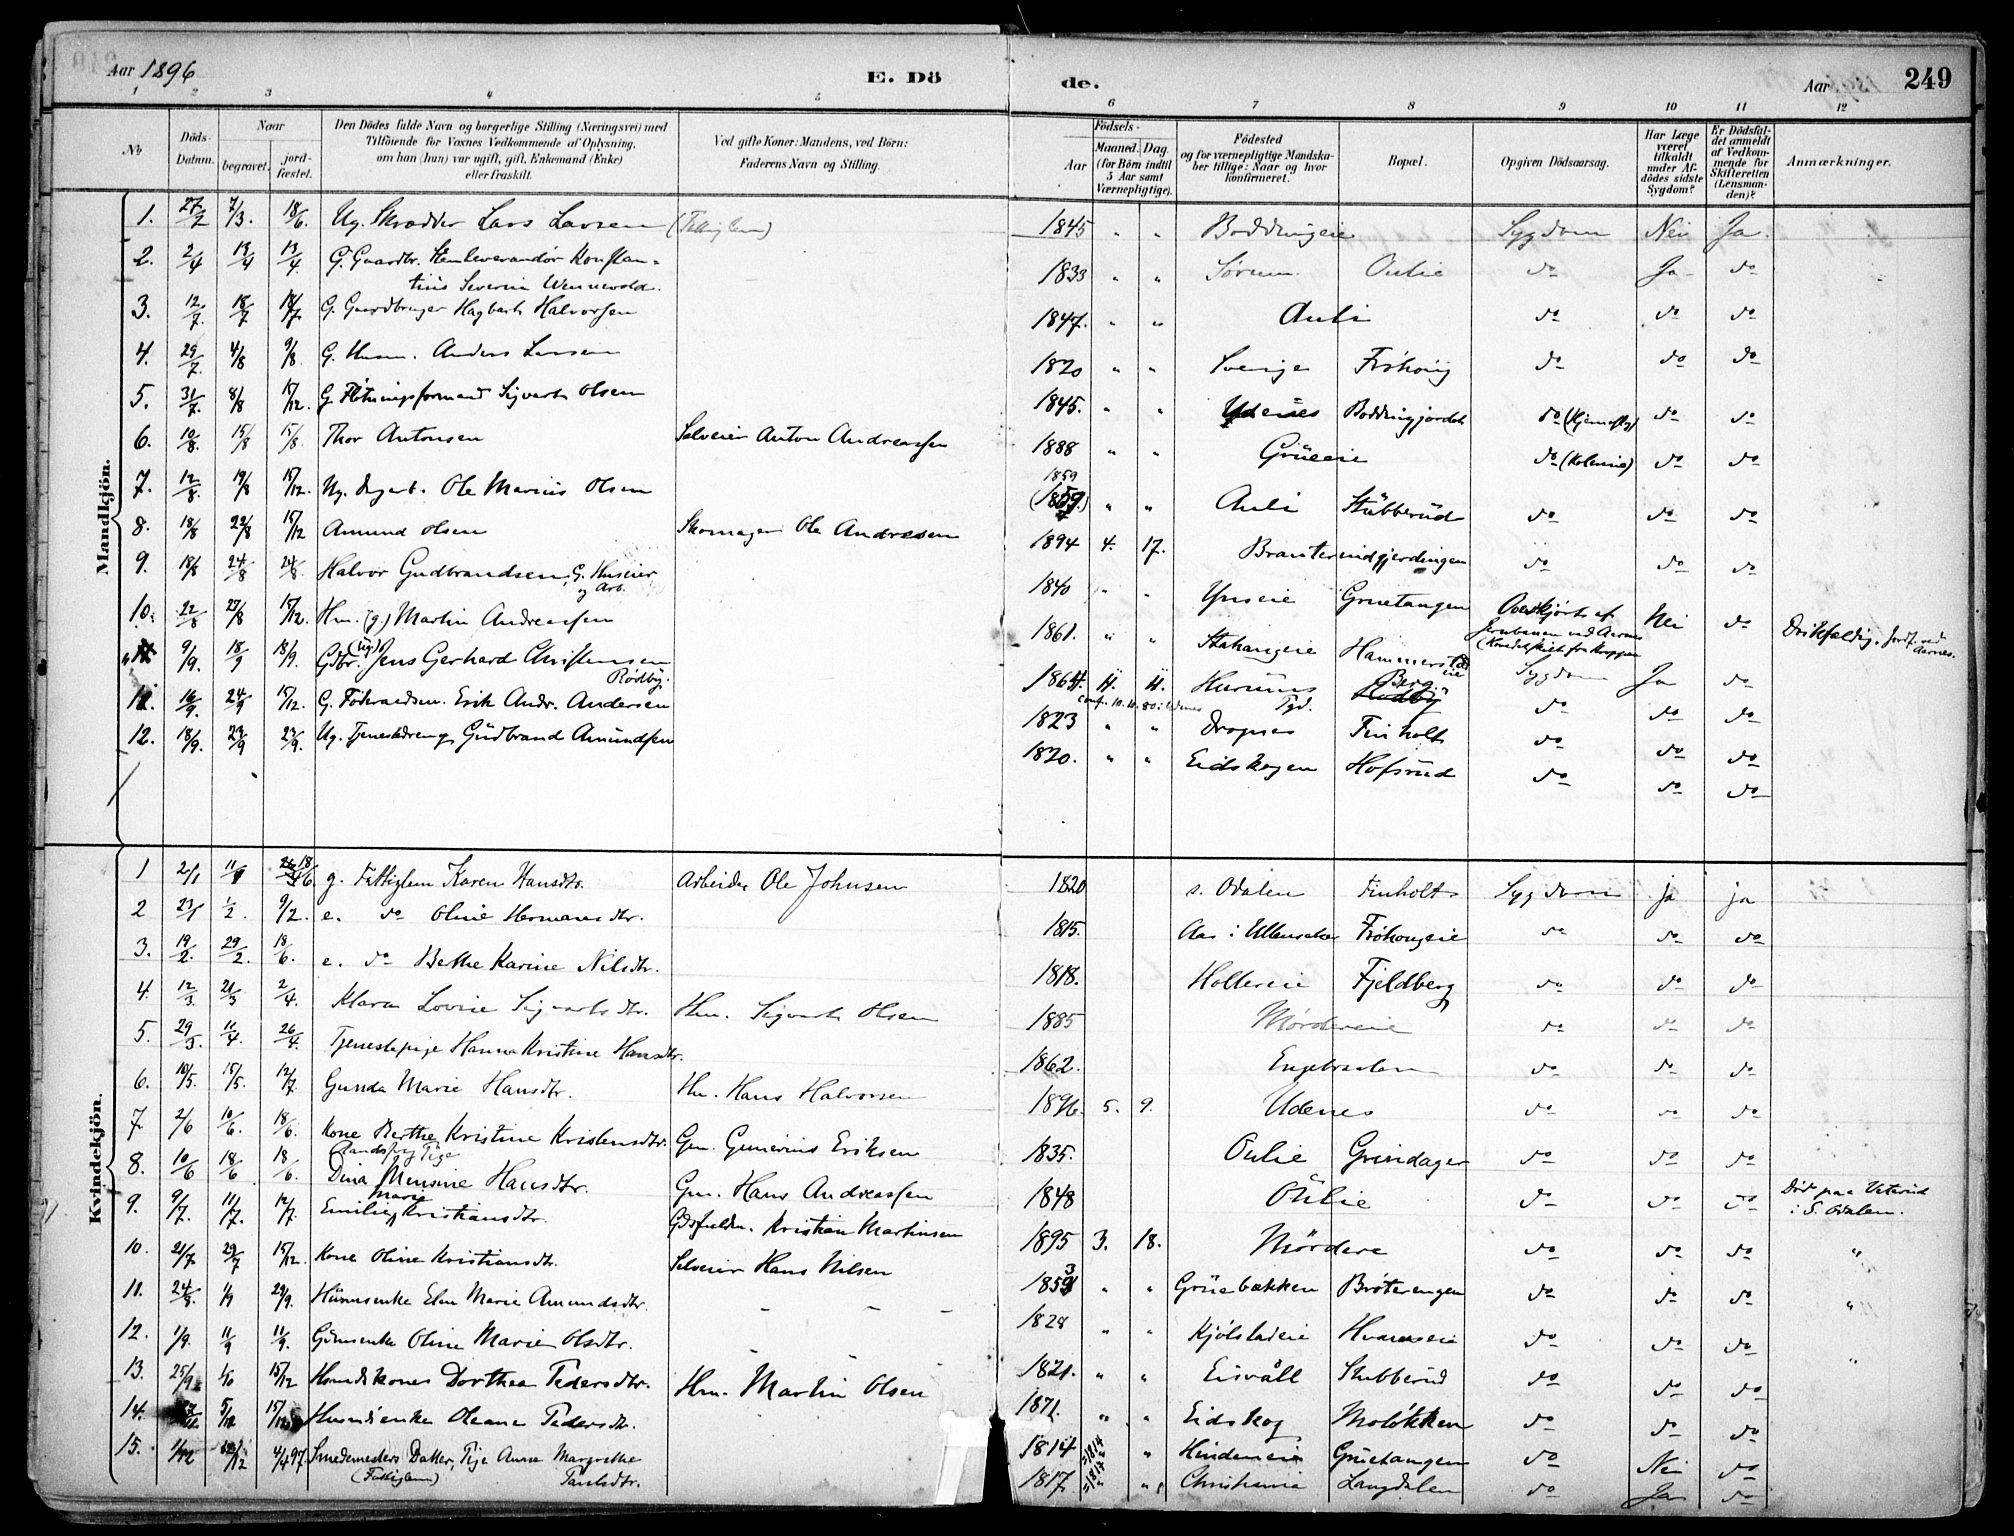 Aar 1896 E. Dö de. Aar 249
1 2 3 4 5 6 7 8 9 10 11 12
№
Döds-Datum.
Naar begravet. jord-fæstet.
Den Dödes fulde Navn og borgerlige Stilling (Næringsvei) med Tilföiende for Voxnes Vedkommende af Oplysning, om han (hun) var ugift, gift, Enkemand (Enke) eller fraskilt.
Ved gifte Koner: Mandens, ved Börn: Faderens Navn og Stilling.
Födsels- Aar Maaned. Dag (for Börn indtil 5 Aar samt Værnepligtige).
Födested og for værnepligtige Mandska-ber tillige: Naar og hvor konfirmeret.
Bopæl.
Opgiven Dödsaarsag.
Har Læge været tilkaldt under Af-dödes sidste Sygdom?
Er Dödsfal-det anmeldt af Vedkom-mende for Skifteretten (Lensman-den)?
Anmærkninger.
Mandkjön.
1. 27/2 7/3. 18/6. Ug. Skrædder Lars Larsen (Fattiglem) 1845 " " Boddingeie Sygdom Nei Ja.
2. 2/4 13/4 13/4 G. Gaardbr. Konstan-
tius Severin Wennevold. 1833 " " Sørum Oulie do Ja do
3. 12/7. 18/7 18/7. G. Gaardbruger Hagbart Halvorsen 1847. " " Auli do do do
4. 29/7. 4/8 9/8 G. Husm. Anders Larsen 1820 " " Sverige Frøhoug do do do
5. 31/7. 8/8 15/12. G. Fløtningsformand Sigvart Olsen 1845. " " Udenes Boddingjordet do do do
6. 10/8. 15/8 15/8. Thor Antonsen Selveier Anton Andreassen 1888 " " Grüeeie do do do
7. 12/8. 19/8 15/12. Ug. Dagarb. Ole Marius Olsen 1859 " " Auli Stübberüd do do do
8. 18/8 22/8 15/12 Amund Olsen Skomager Ole Andresen 1894 4. 17. Branterudgjerdingen do do do
9. 18/8 24/8 24/8. Halvor Gudbrandsen, G. Huseier
og Arb. 1840 " " Ynseie Gruetangen Overkjørt af
Jernbanen ved Aarnes Nei do Drikfældig. Jordf. ved
Aarnes.
10. 22/8 27/8 15/12. Hm. (g.) Martin Andreassen 1861. " " Stahangeie Hammerstad
eie Sygdom Ja do
9/9. 18/9 18/9. Gdbr. (ug.) Jens Gerhard Christensen
Rødby. 1864. Hurums Berg do do do
11. 16/9. 24/9 15/12. G. Føderaadsm. Erik Andr. Andersen 1823 " " Dropnes Finholt do do do
12. 18/9. 23/9 23/9. Ug. Tjenestedreng Güdbrand Amündsen 1820. " " Eidskogen Hofsrüd do do do
Kvindekjön.
1 2/1 11/1 18/6. g. Fattiglem Karen Hansdtr. Arbeider Ole Johnsen 1820 s. Odalen Finholt Sygdom ja ja
2 23/1 1/2. 9/2. e. do Oline Hermansdtr. 1815. Aas i Ullensaker Frøhougeie do do do
3. 19/2. 29/2. 18/6. e. do Bethe Karine Nilsdtr. 1818. Holtereie Fjeldberg do do do
4. 12/3. 21/3 2/4. Klara Lovise Sigvartsdtr. Hm. Sigvart Olsen 1885 Mørdereie do do do
5. 29/3. 11/4. 26/4. Tjenestepige Hanna Kristine Hansdtr. 1862. do do do
6. 10/5. 15/5. 12/7. Gunda Marie Hansdtr. Hm. Hans Halvorsen 1896. 5. 9. Udenes do do do
7. 2/6 10/6. 18/6. Kone Berthe Kristine Kristensdtr. Gm. Gunerius Eriksen 1835. Oulie Grindager do do do
8. 10/6 18/6 18/6 Pige
Dina Mensine Hansdtr. Gm. Hans Andreassen 1848 Oülie do do do Død paa Uterud
i S. Odalen.
9. 9/7. 11/7. 12/7. Emilie Marie Kristiansdtr. Kristian Martinsen 1895 3. 18. Mørdere do do do "
10. 21/7 29/7 15/12. Kone Oline Kristiansdtr. Selveier Hans Nilsen 1853 " " Grüebækken Bröterengen do do do "
11. 24/8. 1/9 29/9. Hüsmsenke Elen Marie Amundsdtr. - - - 1828 " " Kjølstadeie Hvamseie do do do
12. 1/9. 11/9 11/9. Gdmsenke Oline Marie Olsdtr. - - 1821. " " Eisvåll Stubberud do do do "
13. 25/9 1/10 15/12 Hsmdskone Dorthea Pedersdtr. Hm. Martin Olsen 1871. " " Eidskog Moløkken do do do
14. 5/12 15/12 Husmdsenke Oleane Pedersdtr. 1814 " Hindeneie Grüetangen do Nei do
15. 1/12 4/4 97. Smedemesters Datter, Pige Anna Margrethe
(Fattiglem) Paulsdtr. 1817 " Christiania Langdalen do Ja do